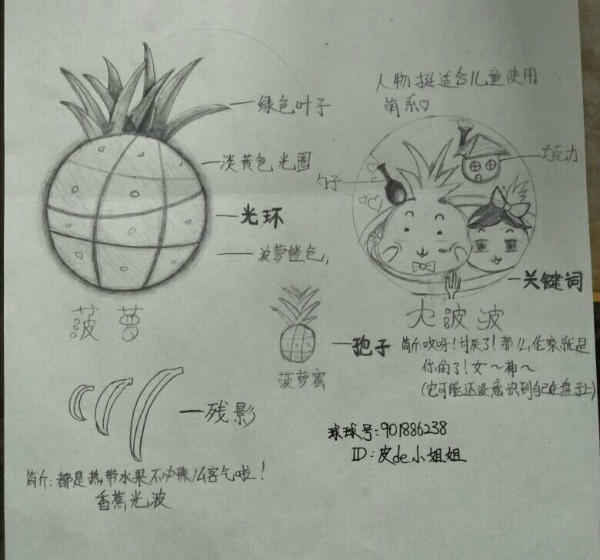 绿色叶子
淡黄色光圈
光环
菠萝橙色,
菠萝
人物挺适合儿童使用
萌系♡
巧克力
勺子
关键词
大波波
孢子
菠萝蜜
简介:哎呀!讨厌了!那么,伦家就是
你的了!女~神~
(它可能还没意识到自己在盘子上)
残影
球球号:901886238
ID:皮de小姐姐
简介:都是热带水果不必辣么客气啦!
香蕉光波